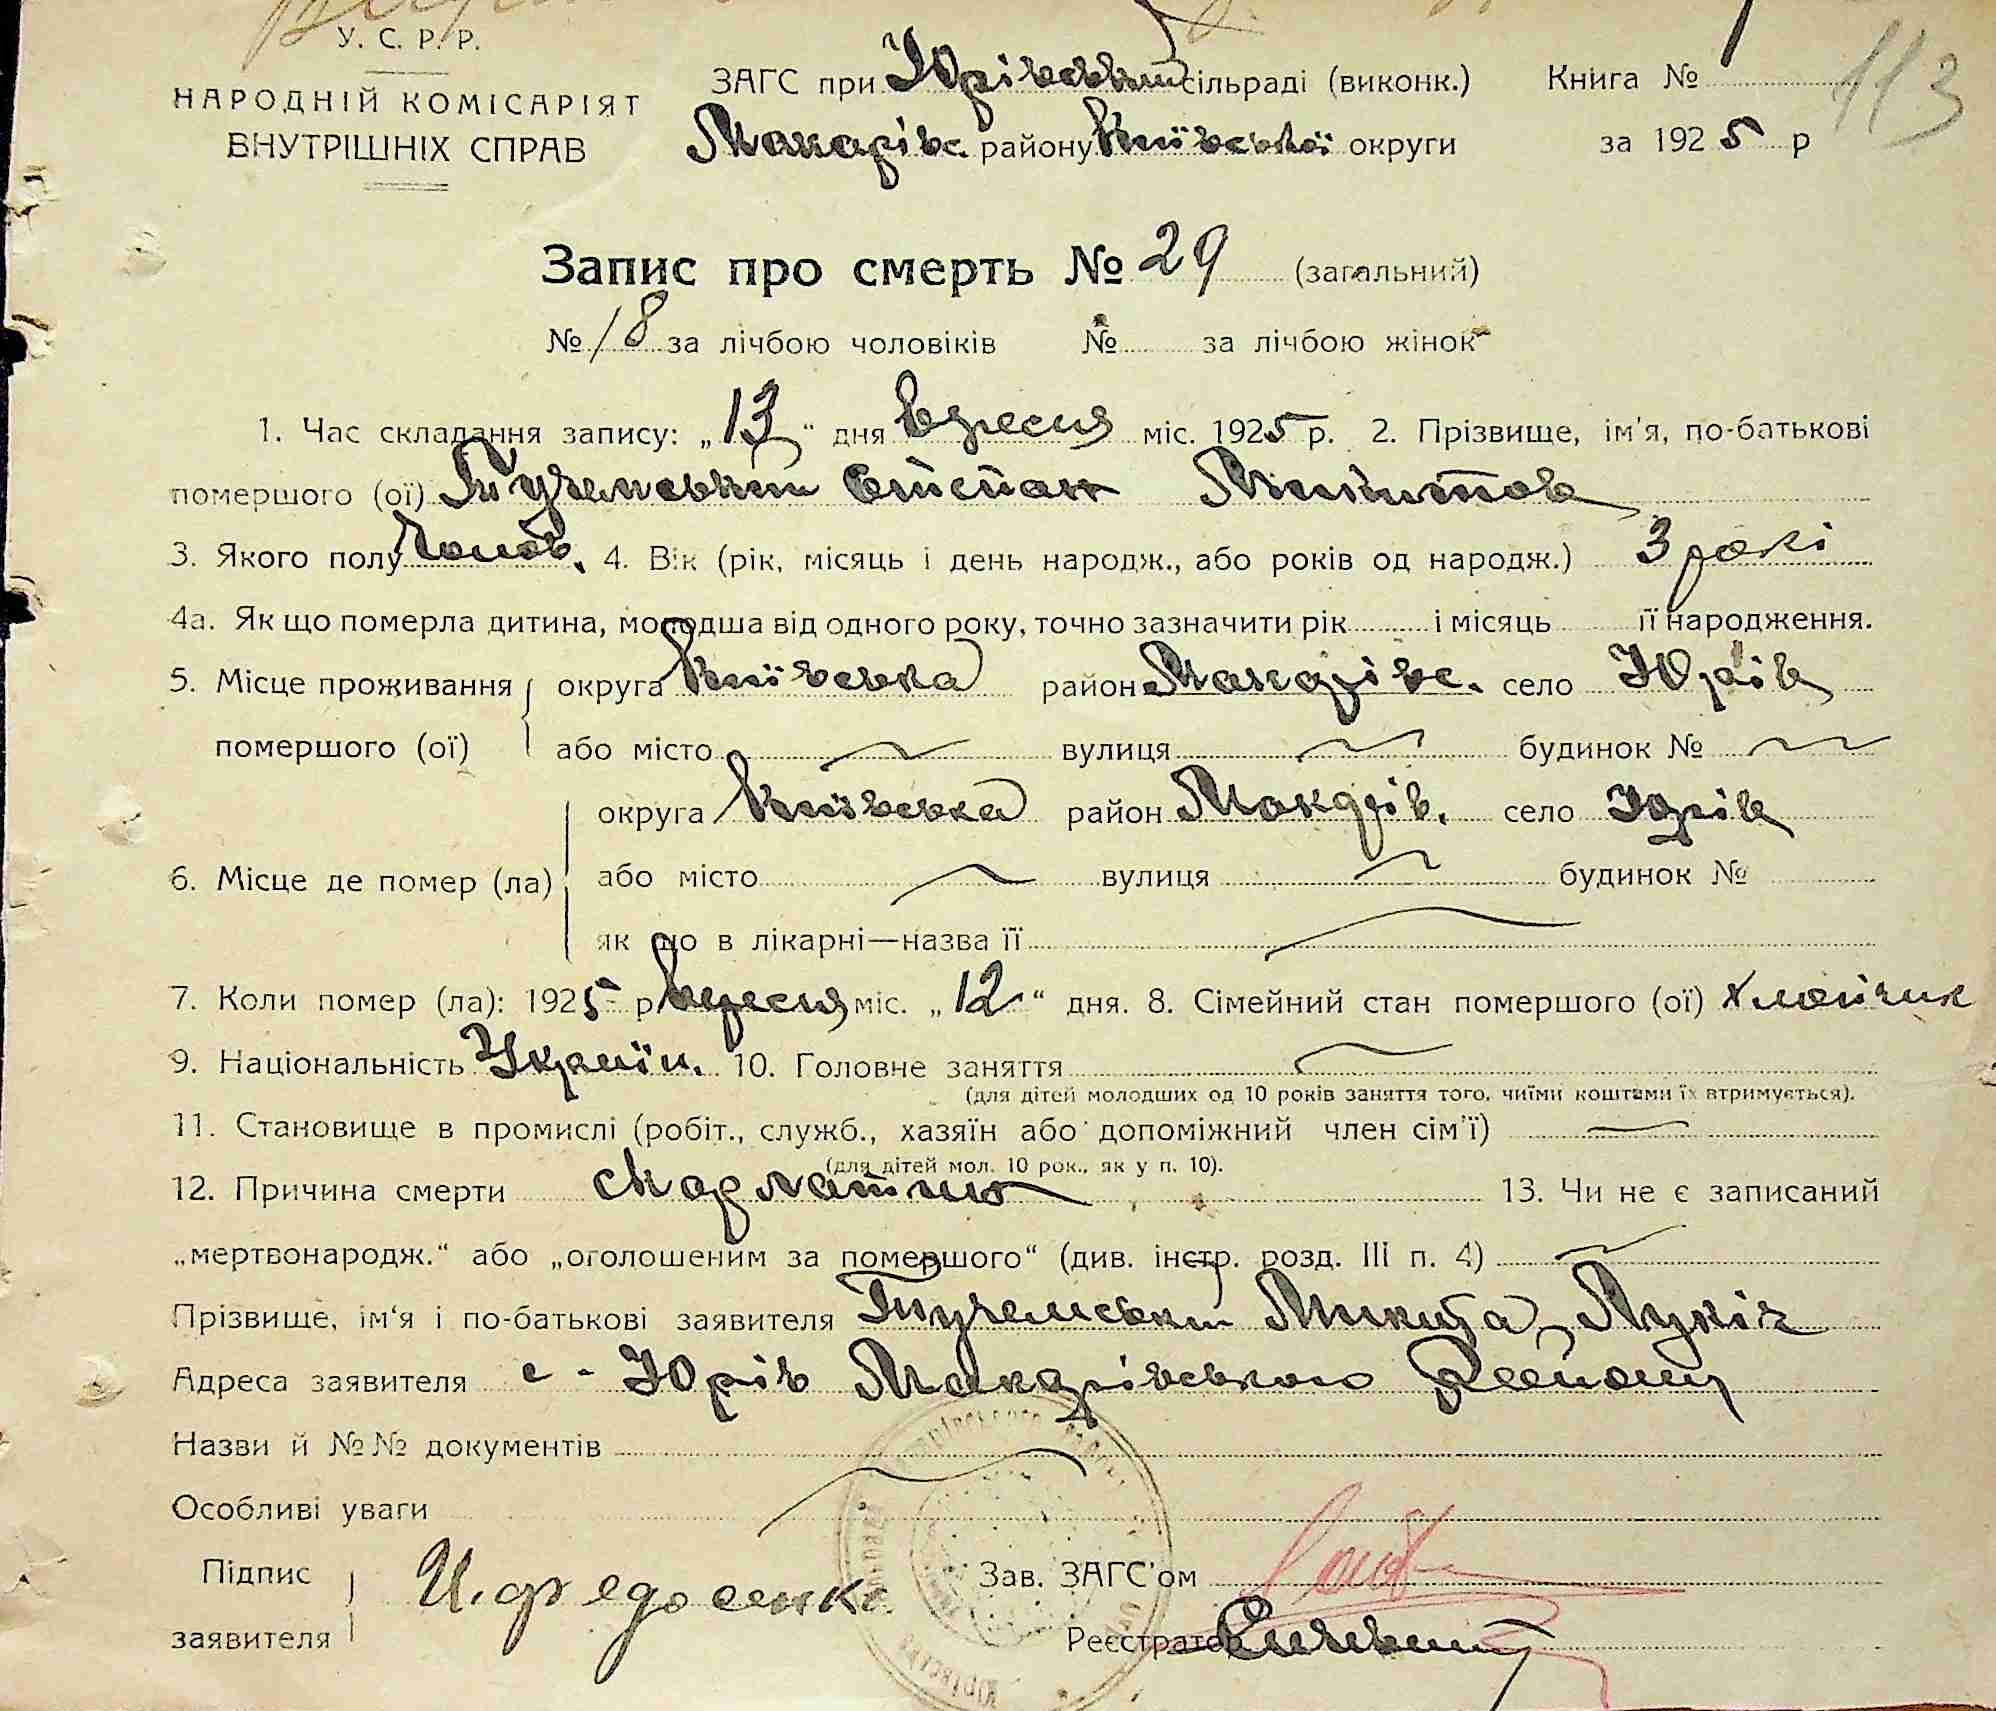 У. С. Р. Р.
НАРОДНІЙ КОМІСАРІЯТ
ВНУТРІШНІХ СПРАВ
ЗАГС при Юрівський сільраді (виконк.) Книга №
Макарівс. району Київської округи за 1925 р
113
Запис про смерть № 29 (загальний)
№ 18 за лічбою чоловіків № за лічбою жінок
1. Час складання запису: „13“ дня вересня міс. 1925 р. 2. Прізвище, ім'я, по-батькові
помершого (ої) Тученський Степан Микитов
3. Якого полу Чолов. 4. Вік (рік, місяць і день народж., або років од народж.) 3 рокі
4а. Як що померла дитина, молодша від одного року, точно зазначити рік і місяць її народження.
5. Місце проживання округа Київська район Макарівс. село Юрів
помершого (ої) або місто вулиця будинок №
округа Київська район Макарів. село Юрів
6. Місце де помер (ла) або місто вулиця будинок №
як що в лікарні—назва її
7. Коли помер (ла): 1925 р вересня міс. „12“ дня. 8. Сімейний стан помершого (ої) хлопчик
9. Національність Україн. 10. Головне заняття
(для дітей молодших од 10 років заняття того, чиїми коштами їх втримується).
11. Становище в промислі (робіт., служб., хазяїн або допоміжний член сім'ї)
(для дітей мол. 10 рок., як у п. 10).
12. Причина смерти скарлатина 13. Чи не є записаний
„мертвонародж.“ або „оголошеним за помершого“ (див. інстр. розд. III п. 4)
Прізвище, ім'я і по-батькові заявителя Микита Лукіч
Адреса заявителя с - Юрів Макарівського Району
Назви й №№ документів
Особливі уваги
Підпис заявителя И. Федосенко Зав. ЗАГС'ом
Реєстратор